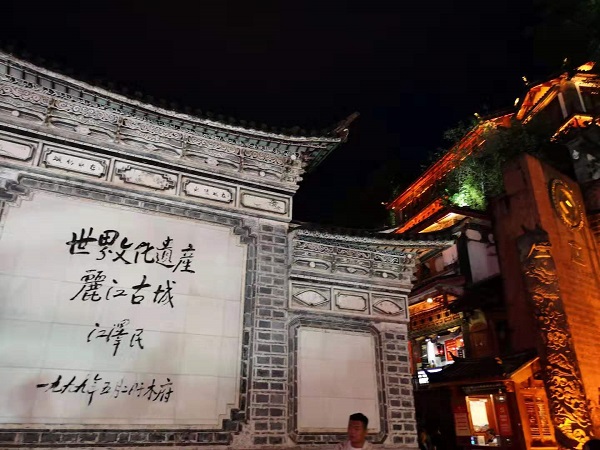 世界文化遺產
麗江古城
江澤民
一九九九年五月二日於木府